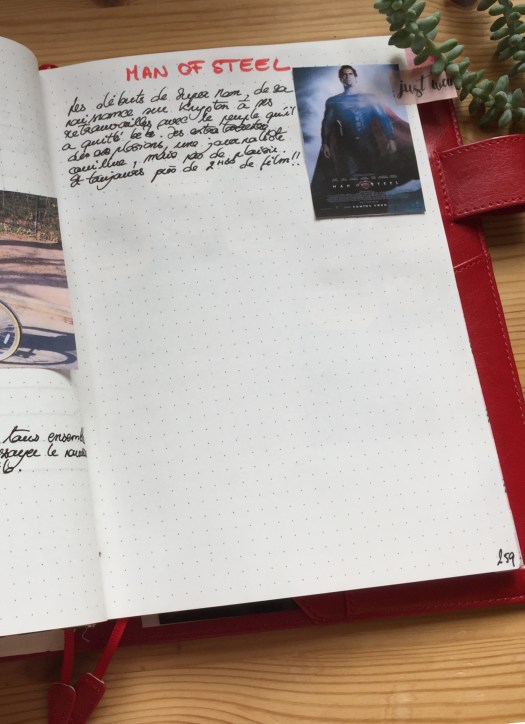 MAN OF STEEL
Les débuts de Super Man, de sa
naissance sur Krypton à ses
retrouvailles avec le peuple qu'il
a quitté bébé. Des extra terrestres,
des explosions, une journaliste
, mais pas de plaisir..
Et toujours près de 2H30 de film!!
MAN OF STEEL
COMING SOON
just
tous ensemb
essayer le
259